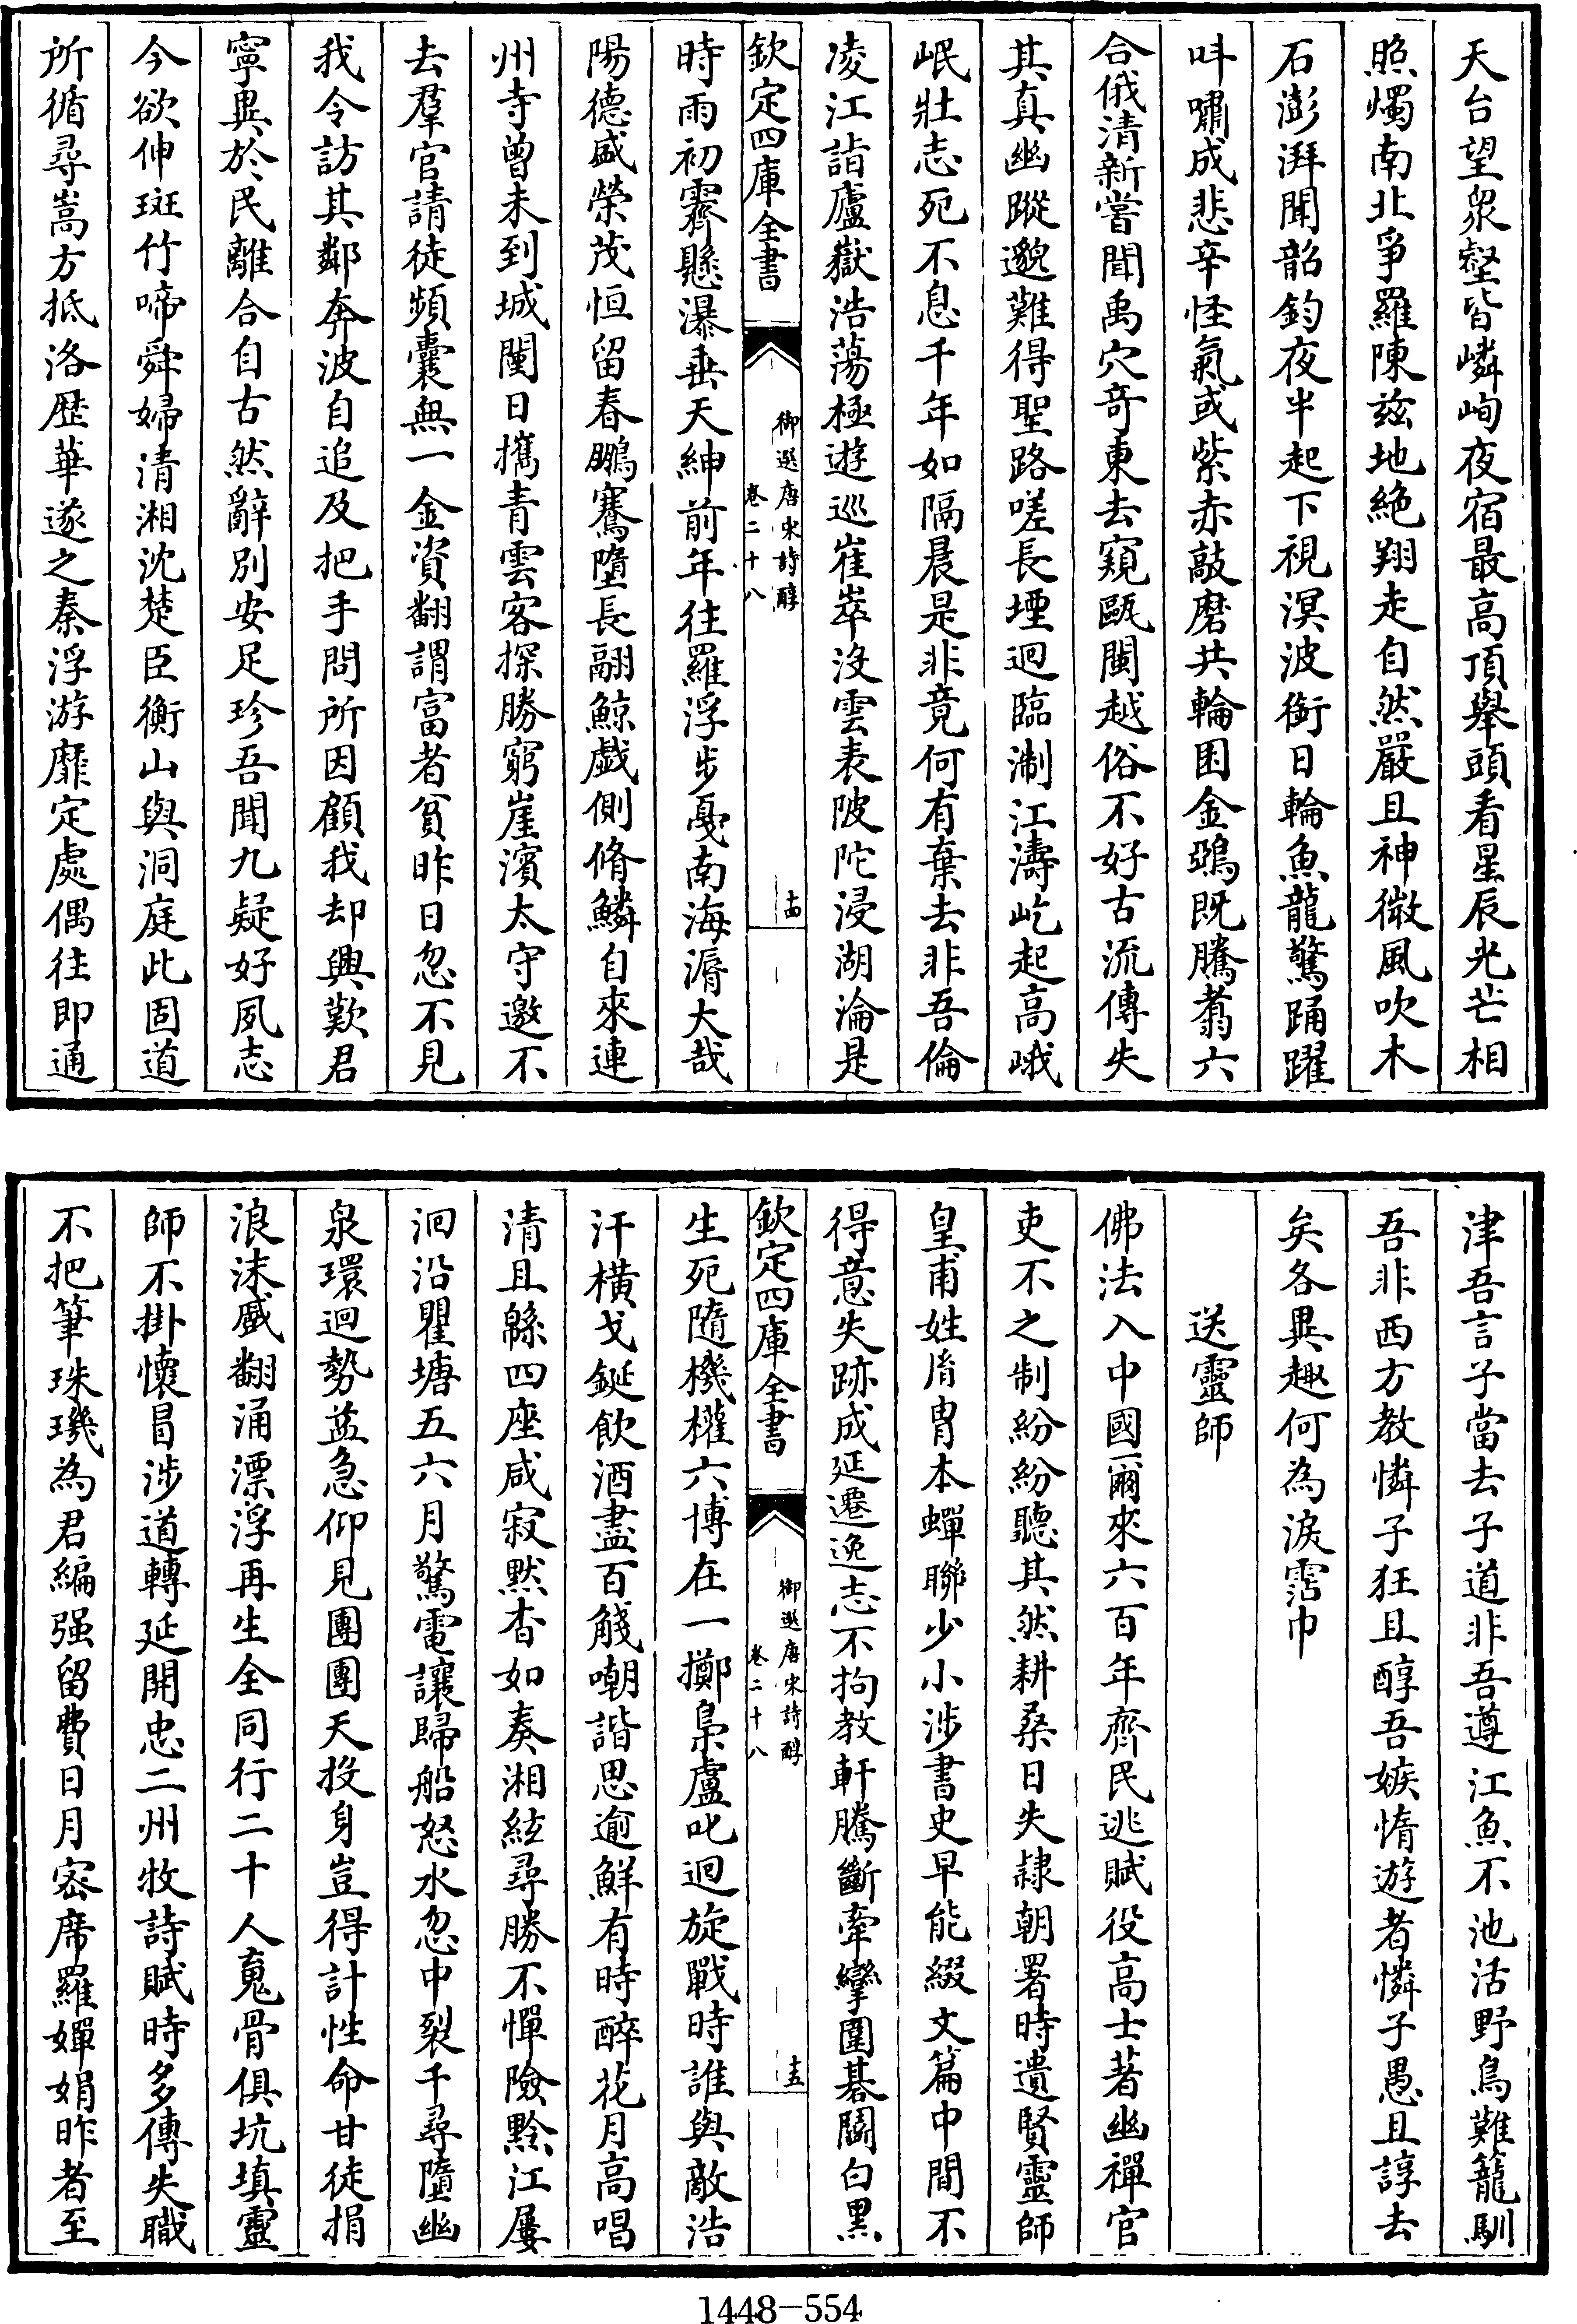 天台望衆壑皆嶙峋夜宿最高頂舉頭看星辰光芒相
照燭南北爭羅陳兹地絶翔走自然嚴且神微風吹木
石澎湃聞韶鈞夜半起下視溟波銜日輪魚龍驚踊躍
呌嘯成悲辛怪氣或紫赤敲磨共輪囷金鵶既騰翥六
合俄清新嘗聞禹穴竒東去窺甌閩越俗不好古流傳失
其真幽蹤邈難得聖路嗟長堙迴臨淛江濤屹起高峨
岷壯志死不息千年如隔晨是非竟何有棄去非吾倫
凌江詣廬嶽浩蕩極遊巡崔崒沒雲表陂陀浸湖淪是
欽定四庫全書
御選唐宋詩醇
卷二十八
十四
時雨初霽懸瀑垂天紳前年往羅浮步戛南海漘大哉
陽德盛榮茂恒留春鵬騫墮長翮鯨戯側脩鱗自來連
州寺曾未到城闉日攜青雲客探勝窮崖濱太守邀不
去羣官請徒頻囊無一金資翻謂富者貧昨日忽不見
我令訪其鄰奔波自追及把手問所因顧我却興歎君
寧異於民離合自古然辭別安足珍吾聞九疑好夙志
今欲伸斑竹啼舜婦清湘沈楚臣衡山與洞庭此固道
所循尋嵩方抵洛歴華遂之秦浮游靡定處偶往即通
津吾言子當去子道非吾遵江魚不池活野鳥難籠馴
吾非西方教憐子狂且醇吾嫉惰遊者憐子愚且諄去
矣各異趣何為淚霑巾
送靈師
佛法入中國爾來六百年齊民逃賦役高士著幽禪官
吏不之制紛紛聽其然耕桑日失隸朝署時遺賢靈師
皇甫姓𦙍胄本蟬聯少小涉書史早能綴文篇中間不
得意失跡成延遷逸志不拘教軒騰斷牽攣圍碁鬬白黑
欽定四庫全書
御選唐宋詩醇
卷二十八
十五
生死隨機權六博在一擲梟盧叱迴旋戰時誰與敵浩
汗横戈鋋飲酒盡百觴嘲諧思逾鮮有時醉花月高唱
清且緜四座咸寂默杳如奏湘絃尋勝不憚險黔江屢
洄沿瞿塘五六月驚電讓歸船怒水忽中裂千尋墮幽
泉環迴勢益急仰見團團天投身豈得計性命甘徒捐
浪沫蹙翻涌漂浮再生全同行二十人䰟骨俱坑填靈
師不掛懷冒涉道轉延開忠二州牧詩賦時多傳失職
不把筆珠璣為君編强留費日月密席羅嬋娟昨者至
1448—554